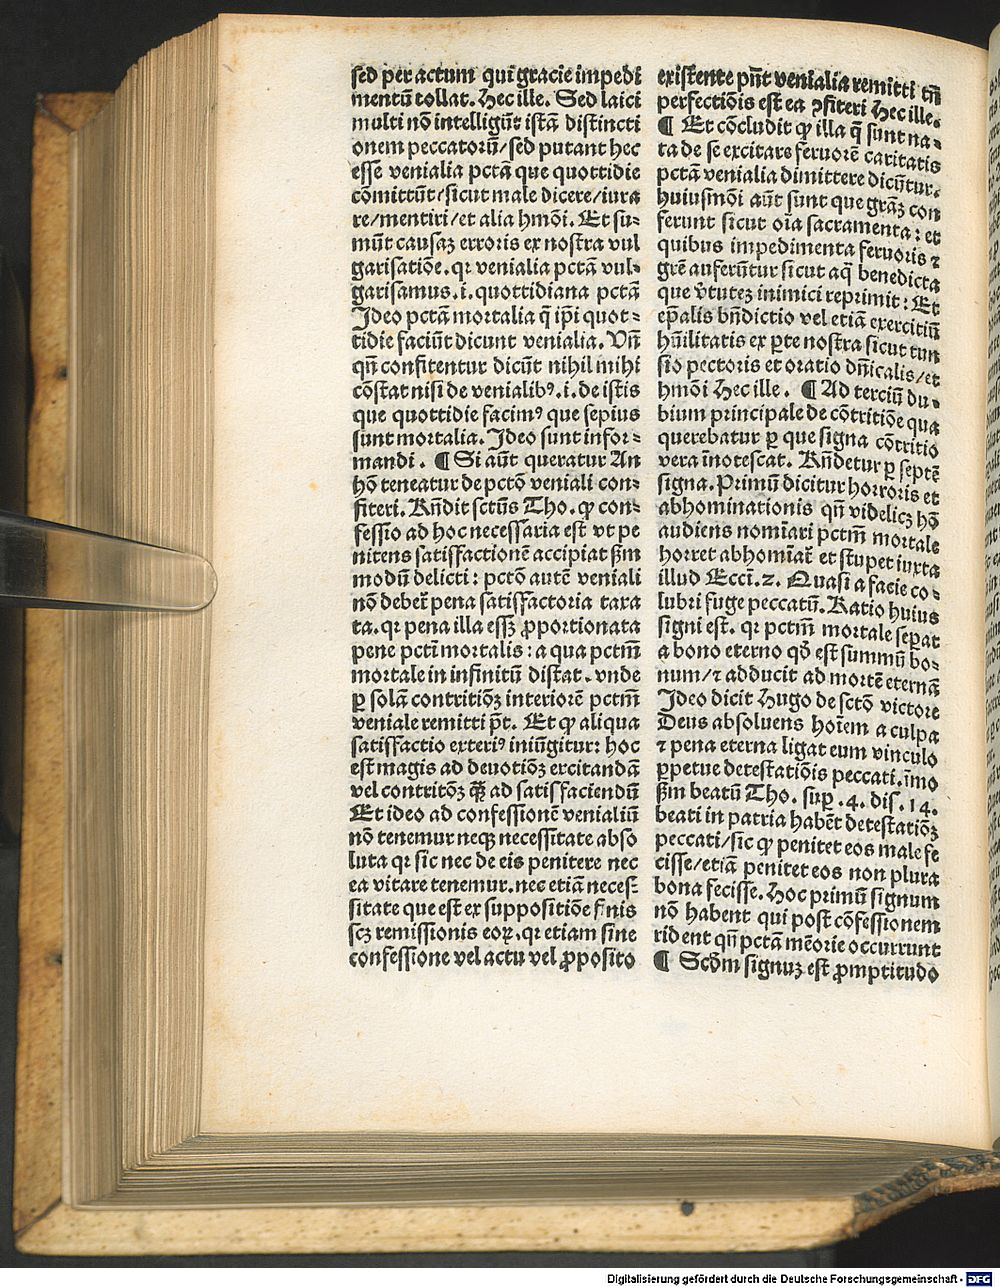 sed per actum qui gracie impedi
mentū tollat. Hec ille. Sed laici
multi nō intelligūt istā distincti
onem peccatorū/sed putant hec
esse venialia pctā que quottidie
cōmittūt/sicut male dicere/iura
re/mentiri/et alia hmōi. Et su⸗
mūt causaȝ erroris ex nostra vul
garisatiōe. qꝛ venialia pctā vul⸗
garisamus .i. quottidiana pctā
Ideo pctā mortalia q̄ ip̄i quot⸗
tidie faciūt dicunt venialia. Vn̄
qn̄ confitentur dicūt nihil mihi
cōstat nisi de venialibꝰ .i. de istis
que quottidie facimꝰ que sepius
sunt mortalia. Ideo sunt infor⸗
mandi. ¶ Si aūt queratur An
hō teneatur de pctō veniali con⸗
fiteri. Rn̄dit sctūs Tho. ꝙ con⸗
fessio ad hoc necessaria est vt pe
nitens satisfactionē accipiat ẜm
modū delicti: pctō autē veniali
nō debet̄ pena satisfactoria taxa
ta. qꝛ pena illa essȝ ꝓportionata
pene pctī mortalis: a qua pctm̄
mortale in infinitū distat. vnde
ꝑ solā contritiōȝ interiorē pctm̄
veniale remitti pt̄. Et ꝙ aliqua
satisfactio exteriꝰ iniūgitur: hoc
est magis ad deuotiōȝ excitandā
vel contritōȝ qȝ̄ ad satisfaciendū
Et ideo ad confessionē venialiū
nō tenemur neqȝ necessitate abso
luta qꝛ sic nec de eis penitere nec
ea vitare tenemur. nec etiā neces⸗
sitate que est ex suppositiōe finis
scȝ remissionis eoꝝ. qꝛ etiam sine
confessione vel actu vel ꝓposito
existente pn̄t venialia remitti tn̄
perfectiōis est ea ꝯfiteri Hec ille.
¶ Et cōcludit ꝙ illa q̄ sunt na⸗
ta de se excitare feruorē caritatis
pctā venialia dimittere dicūtur.
huiusmōi aūt sunt que grāȝ con
ferunt sicut oīa sacramenta: et
quibus impedimenta feruoris ⁊
grē auferūtur sicut aq̄ benedicta
que v̄tuteȝ inimici reprimit: Et
ep̄alis bn̄dictio vel etiā exercitiū
hūilitatis ex ꝑte nostra sicut tun
sio pectoris et oratio dn̄icalis/et
hmōi Hec ille. ¶ Ad terciū du⸗
bium principale de cōtritiōe qua
querebatur ꝑ que signa cōtritio
vera īnotescat. Rn̄detur ꝑ septē
signa. Primū dicitur horroris et
abhominationis qn̄ videlicȝ hō
audiens nomīari pctm̄ mortale
horret abhomīat̄ et stupet iuxta
illud Eccī. 2. Quasi a facie co⸗
lubri fuge peccatū. Ratio huius
signi est. qꝛ pctm̄ mortale sepat
a bono eterno qd̄ est summū bo⸗
num/⁊ adducit ad mortē eternā
Ideo dicit Hugo de sctō victore
Deus absoluens hoīem a culpa
⁊ pena eterna ligat eum vinculo
ꝑpetue detestatiōis peccati. īmo
ẜm beatū Tho. suꝑ .4. dis. 14.
beati in patria habēt detestatiōȝ
peccati/sic ꝙ penitet eos male fe
cisse/etiā penitet eos non plura
bona fecisse. Hoc primū signum
nō habent qui post cōfessionem
rident qn̄ pctā mēorie occurrunt
¶ Scdm̄ signuȝ est ꝓmptitudo
Digitalisierung gefördert durch die Deutsche Forschungsgemeinschaft - DFG